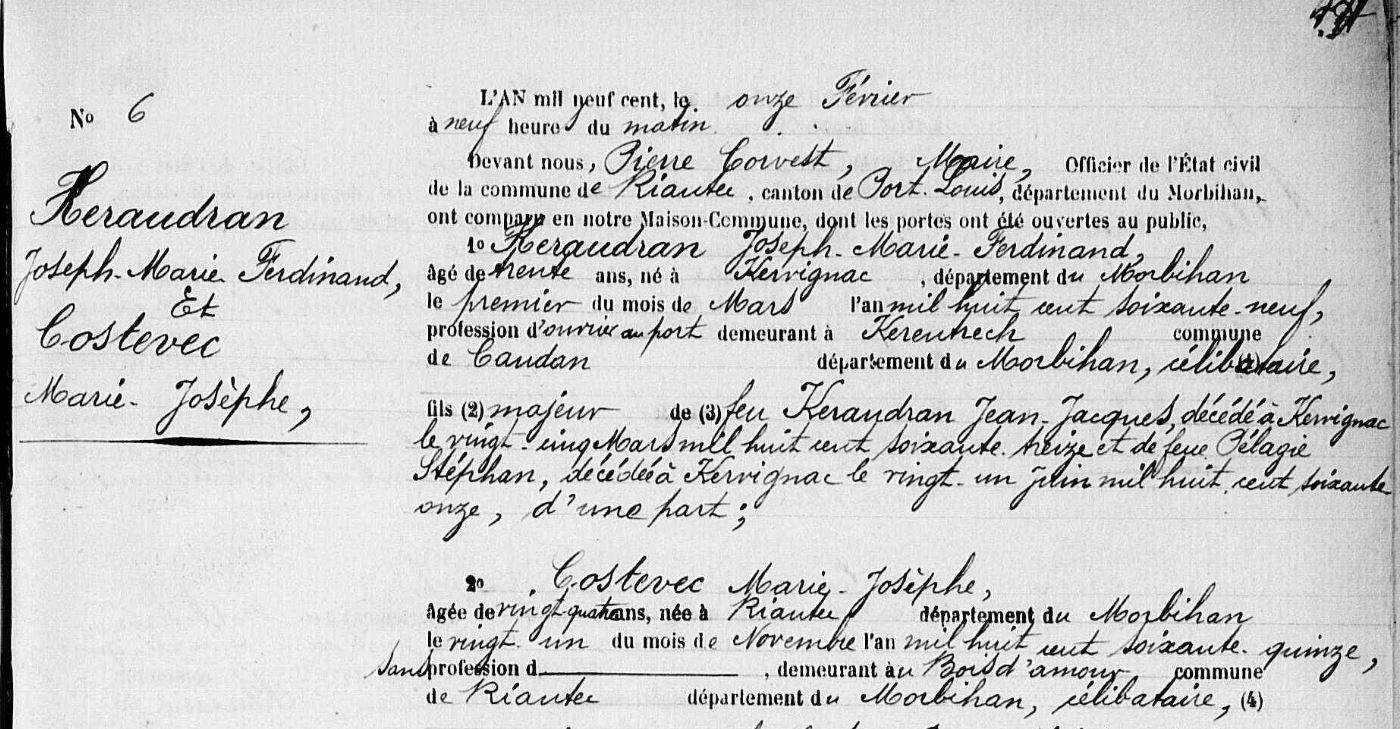 No 6
Keraudran
Joseph-Marie Ferdinand,
Et
Costevec
Marie-Josèphe,
L'AN mil neuf cent, le onze Février
à neuf heures du matin
Devant nous, Pierre Corvest, Maire, Officier de l'État civil
de la commune de Riantec, canton de Port-Louis, département du Morbihan,
ont comparu en notre Maison-Commune, dont les portes ont été ouvertes au public,
1o Keraudran Joseph-Marie-Ferdinand,
âgé de trente ans, né à Kervignac, département du Morbihan
le premier du mois de Mars l'an mil huit cent soixante-neuf,
profession d'ouvrier au port demeurant à Kerentrech commune
de Caudan département du Morbihan, célibataire,
fils (2) majeur de (3) feu Keraudran Jean-Jacques, décédé à Kervignac
le vingt-cinq Mars mil huit cent soixante-treize et de feue Pélagie
Stéphan, décédée à Kervignac le vingt-un Juin mil huit cent soixante
onze, d'une part;
2o Costevec Marie-Josèphe,
âgée de vingt-quatre ans, née à Riantec département du Morbihan
le vingt-un du mois de Novembre l'an mil huit cent soixante-quinze,
sans profession d, demeurant au Bois d'amour commune
de Riantec département du Morbihan, célibataire, (4)